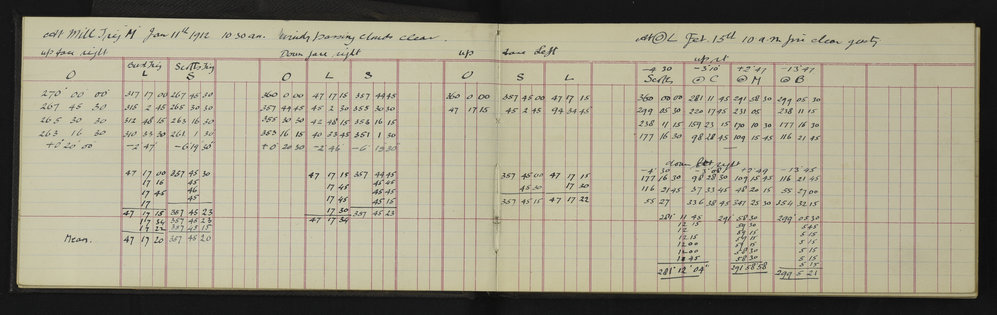 At Mill Trig "M" Jan 11th 1912. 10 30 a.m. Windy passing clouds clear.
up face right Down face right up face Left
O L Scotts Trig S O L S O S L
270° 00 00 317 17 00 267 45 30 360 0 00 47 17 15 357 44 45 360 0 00 357 45 00 47 17 15
267 45 30 315 2 45 265 30 30 357 44 45 45 2 30 355 30 30 47 17 15 45 2 45 94 34 45
265 30 30 312 48 15 263 16 30 355 30 30 42 48 15 353 16 15
263 16 30 310 33 30 261 1 30 353 16 15 40 33 45 351 1 30
+0° 20 00 -2 47' -6 19 30" +0° 20 30 -2 46 -6 19 30"
47 17 00 357 45 30 47 17 15 357 44 45 357 45 00 47 17 15
17 16 45 17 45 45 45 45 30 17 30
17 45 46 17 45 44 45 357 45 15 47 17 22
17 45 17 45 45 15
47 17 15 357 45 23 17 30 357 45 23
17 34 357 45 23 47 17 34
17 22 357 45 15
Mean. 47 17 20 357 45 20
At @ L Feb. 15th 10 a.m. fine clear gusty
up rt
-4 30 -3° 10' +2° 47 -13° 47
Scotts @ C @ M @ B
360 00 00 281 11 45 291 58 30 299 05 30
299 05 30 220 17 45 231 05 238 11 15
238 11 15 159 23 15 170 10 30 177 16 30
177 16 30 98 28 45 109 15 45 116 21 45
down right
-4° 30 -3° 08' +2° 49 -13° 45
177 16 30 98 28 30 109 15 45 116 21 45
116 21 45 37 33 45 48 20 15 55 27 00
55 27 336 38 45 347 25 30 354 32 15
281° 11 45 291° 58 30 299° 05 30
12 15 59 30 5 45
12 59 15 5 15
12 15 59 15 5 15
12 00 59 00 5 15
12 00 58 30 5 15
11 45 58 30 5 15
281° 12' 04" 291 58 58 299 5 21